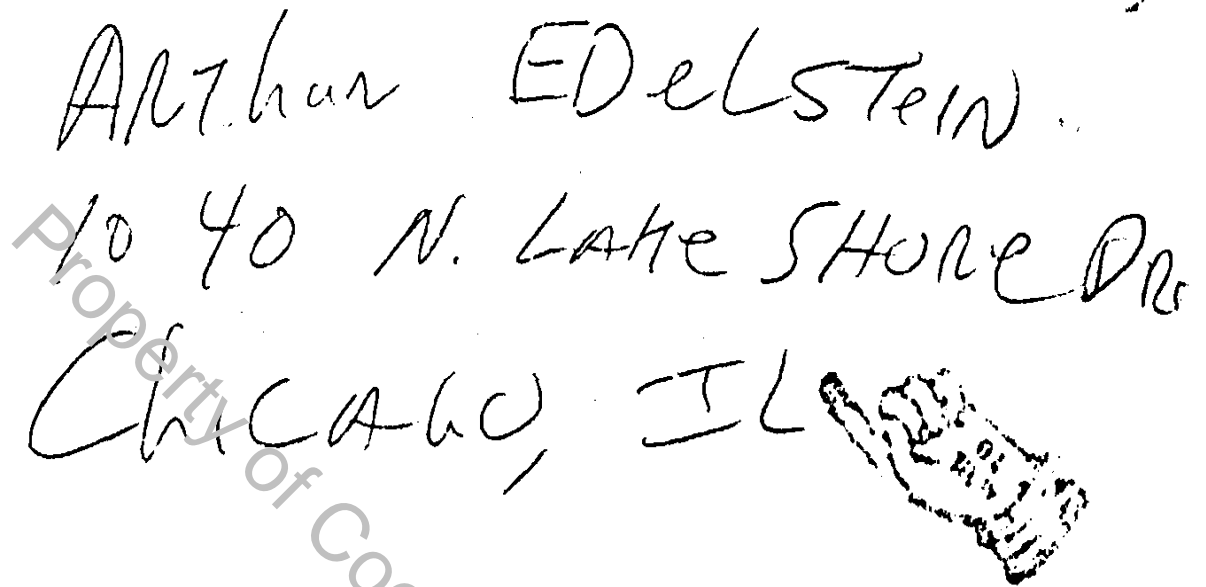 ARThur EDelSTeIN.
1040 N. LAKe SHORe DR.
ChICAGO, IL
Property of Coo